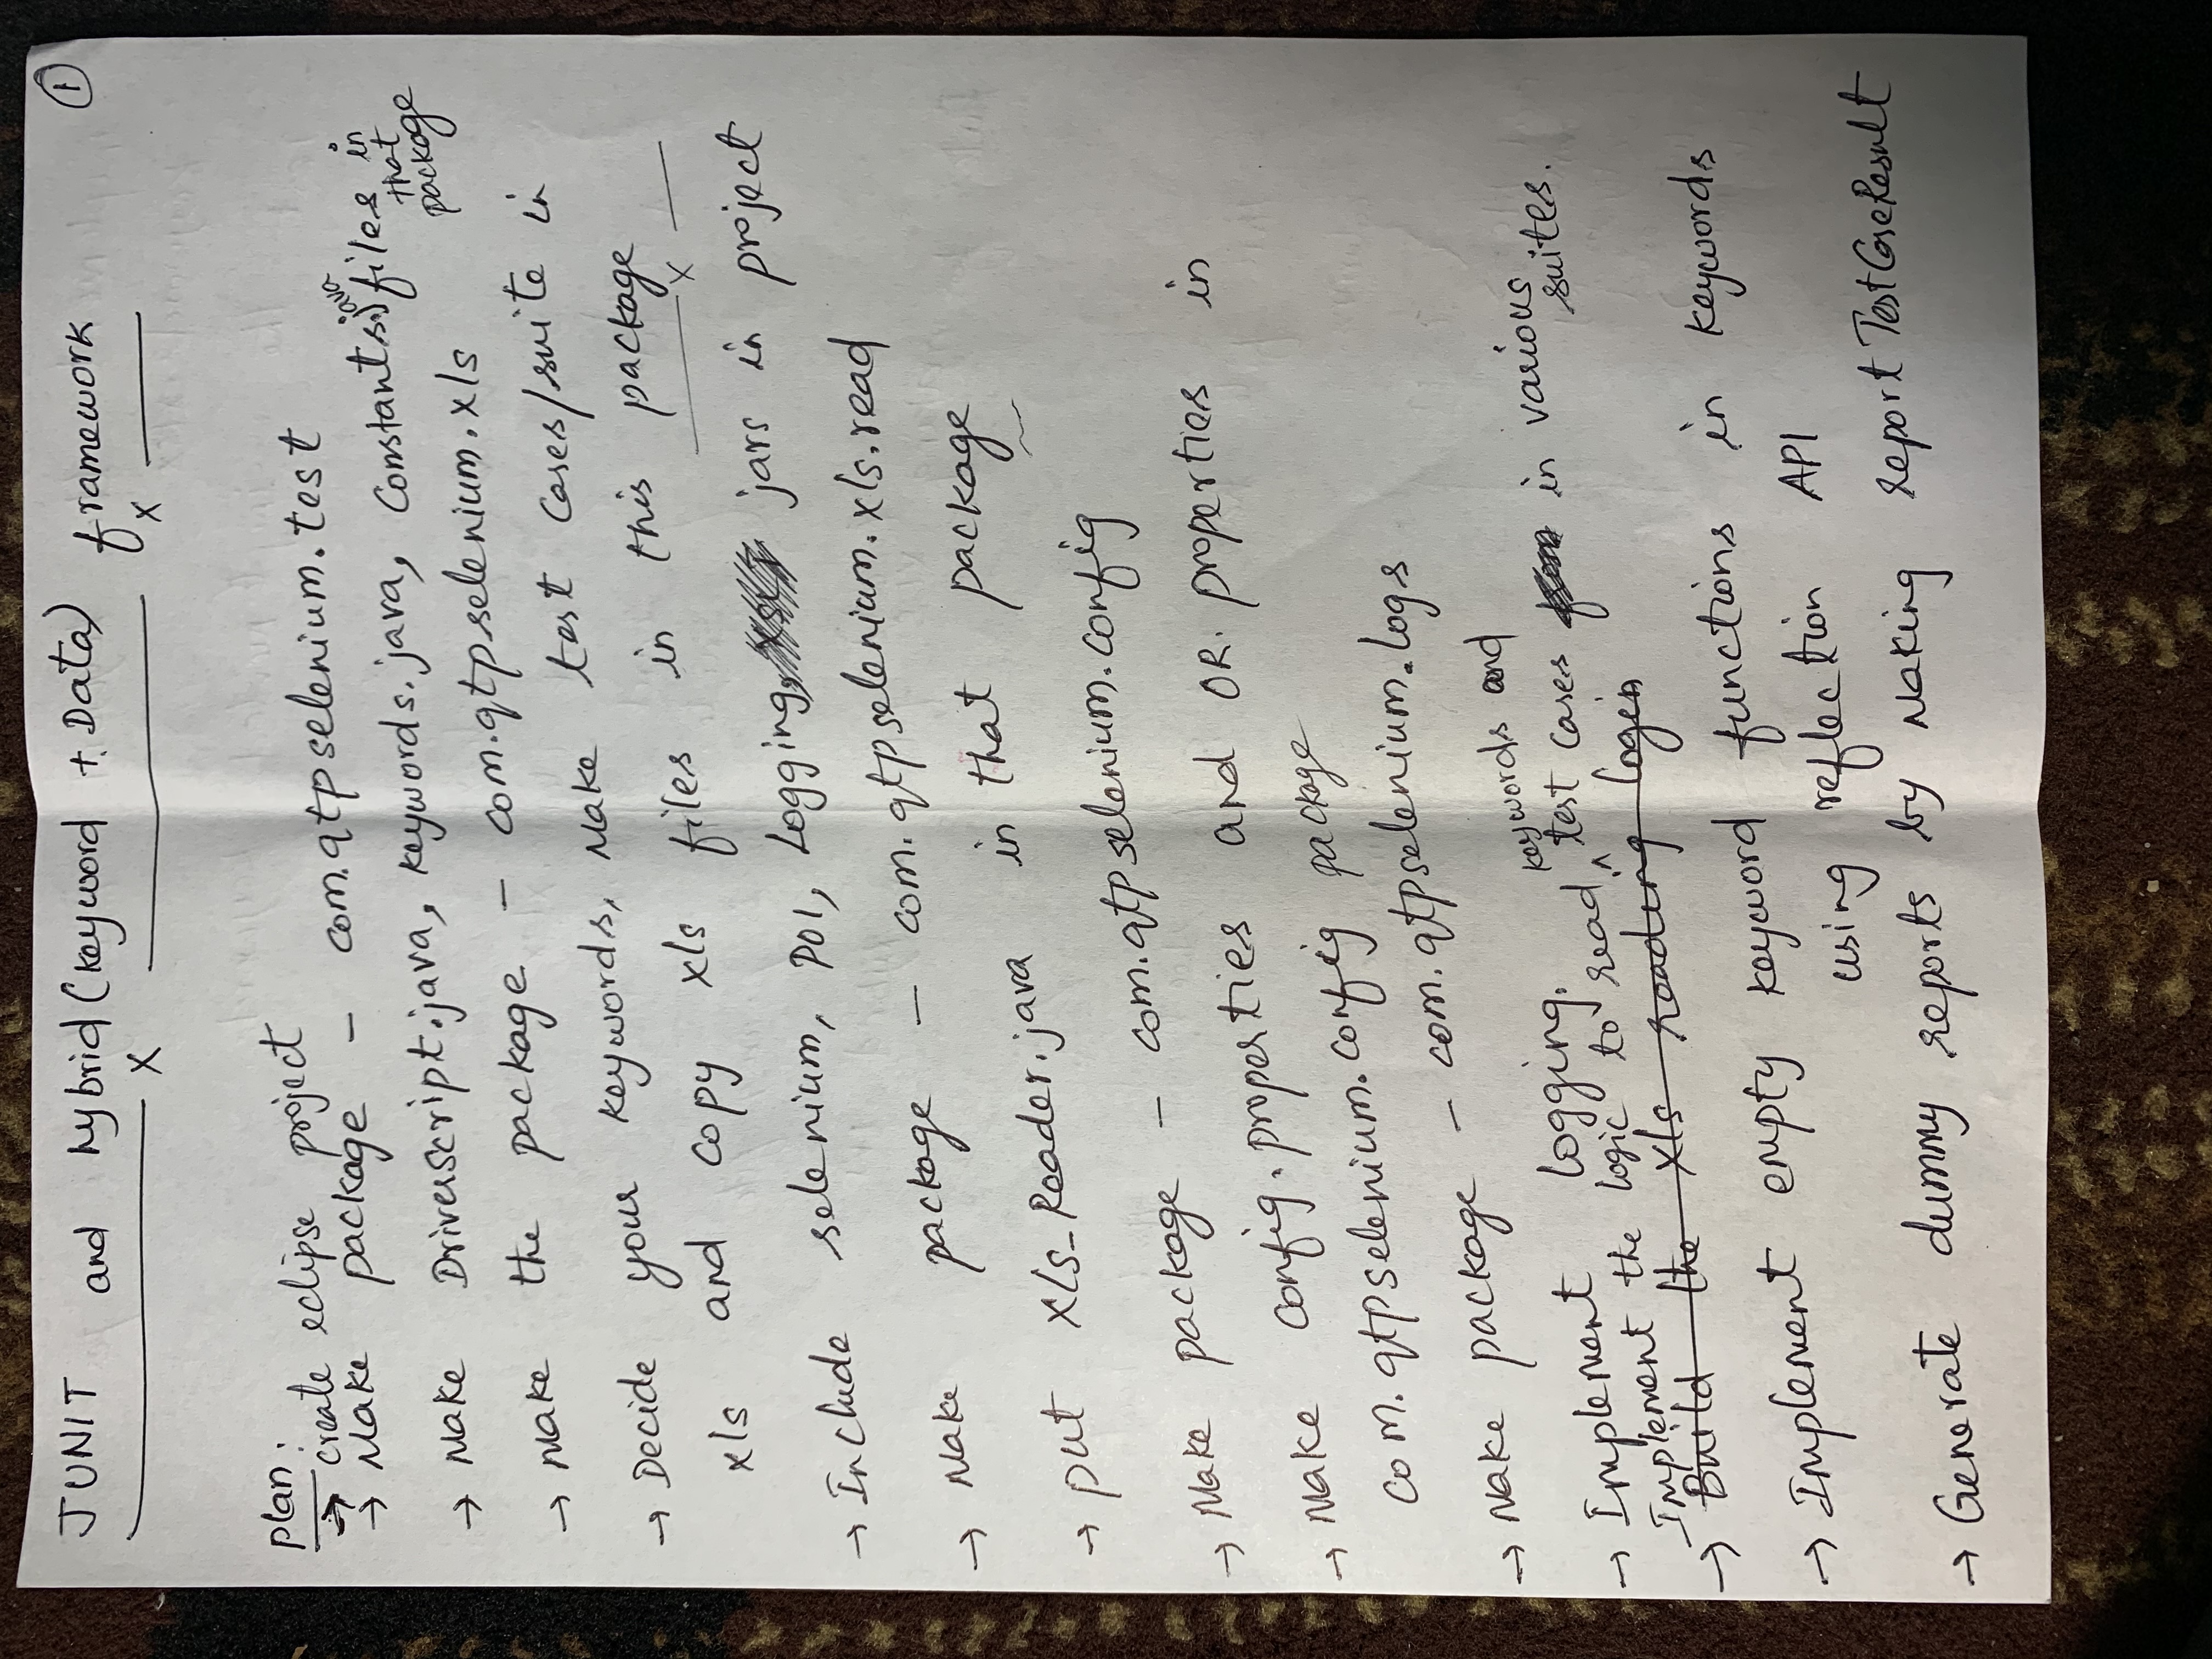 JUNIT and hybrid(keyword + Data) framework ①
x x
plan:
→ create eclipse project
→ Make package - com.qtpselenium.test
→ Make DriverScript.java, keywords.java, Constants.java files in that package
→ Make the package - com.qtpselenium.xls
→ Decide your keywords, Make test cases/suite in
xls and copy xls files in this package
x
→ Include selenium, POI, Logging, jars in project
→ Make package - com.qtpselenium.xls.read
→ put Xls_Reader.java in that package
→ Make package - com.qtpselenium.config
→ Make config.properties and OR.properties in
com.qtpselenium.config package
→ Make package - com.qtpselenium.logs
→ Implement logging.
Implement the logic to read keywords and test cases in various suites.
→ Build the xls reading login
→ Implement empty keyword functions in keywords
using reflection API
→ Generate dummy reports by Making reportTestCaseResult